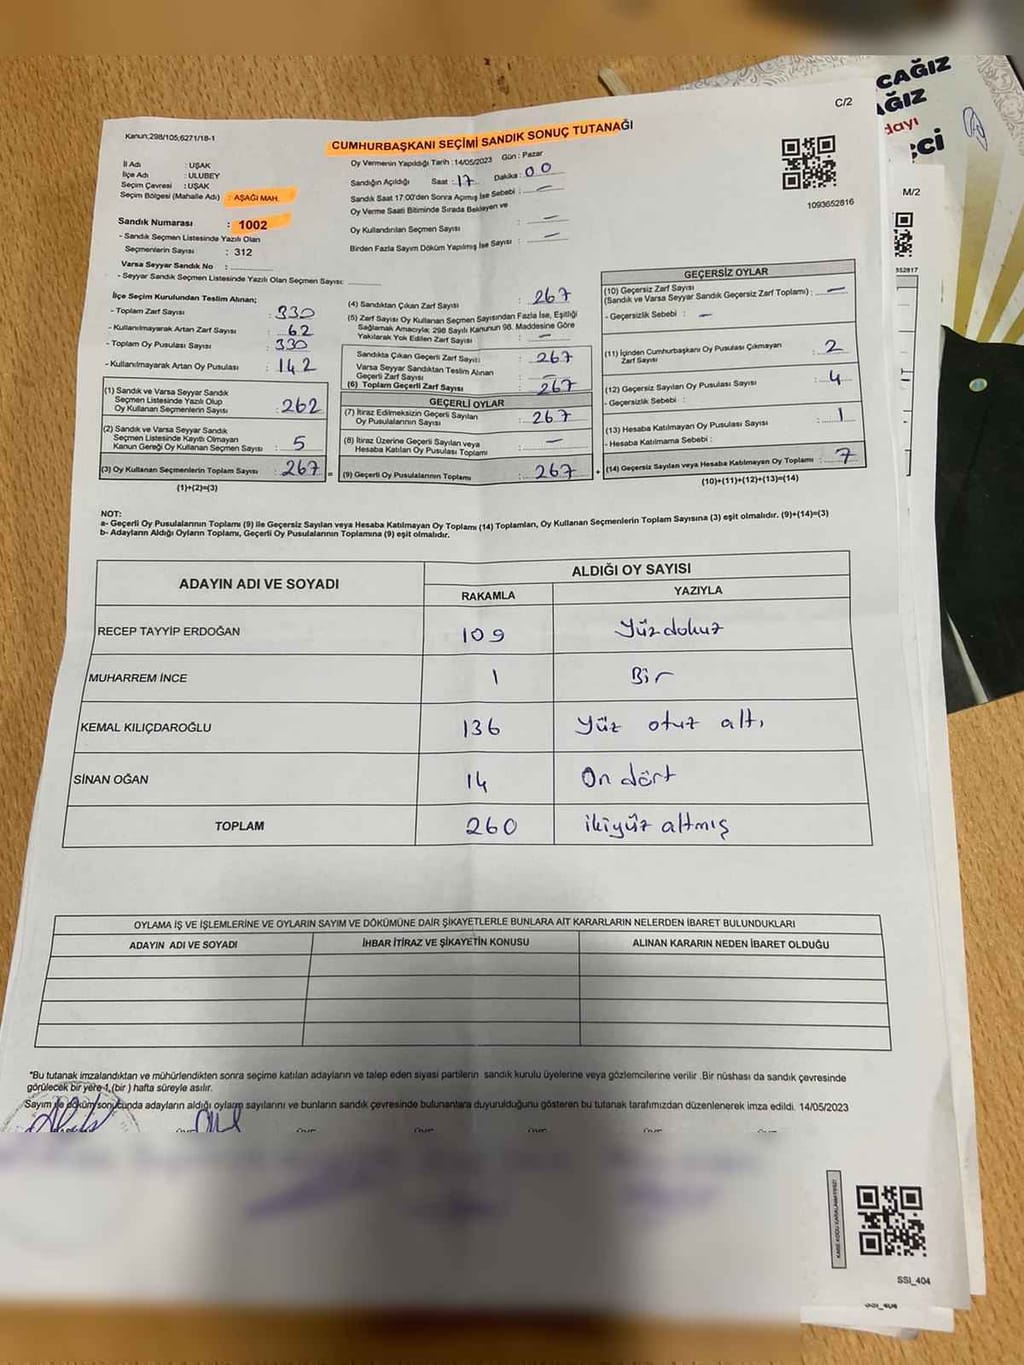 CAĞIZ
AĞIZ
dayı
C/2
Kanun;298/105;6271/18-1
CUMHURBAŞKANI SEÇİMİ SANDIK SONUÇ TUTANAĞI
İl Adı : UŞAK
İlçe Adı : ULUBEY
Seçim Çevresi : UŞAK
Seçim Bölgesi (Mahalle Adı) : AŞAĞI MAH.
Sandık Numarası : 1002
- Sandık Seçmen Listesinde Yazılı Olan
Seçmenlerin Sayısı : 312
Varsa Seyyar Sandık No :
- Seyyar Sandık Seçmen Listesinde Yazılı Olan Seçmen Sayısı:
Oy Vermenin Yapıldığı Tarih : 14/05/2023 Gün : Pazar
Sandığın Açıldığı Saat : 17 Dakika : 00
Sandık Saat 17:00'den Sonra Açılmış İse Sebebi : —
Oy Verme Saati Bitiminde Sırada Bekleyen ve
Oy Kullandırılan Seçmen Sayısı : —
Birden Fazla Sayım Döküm Yapılmış İse Sayısı : —
1093652816
M/2
İlçe Seçim Kurulundan Teslim Alınan;
- Toplam Zarf Sayısı : 330
- Kullanılmayarak Artan Zarf Sayısı : 62
- Toplam Oy Pusulası Sayısı : 330
- Kullanılmayarak Artan Oy Pusulası : 142
(1) Sandık ve Varsa Seyyar Sandık
Seçmen Listesinde Yazılı Olup
Oy Kullanan Seçmenlerin Sayısı : 262
(2) Sandık ve Varsa Seyyar Sandık
Seçmen Listesinde Kayıtlı Olmayan
Kanun Gereği Oy Kullanan Seçmen Sayısı : 5
(3) Oy Kullanan Seçmenlerin Toplam Sayısı : 267
(1)+(2)=(3)
(4) Sandıktan Çıkan Zarf Sayısı : 267
(5) Zarf Sayısı Oy Kullanan Seçmen Sayısından Fazla İse, Eşitliği
Sağlamak Amacıyla; 298 Sayılı Kanunun 98. Maddesine Göre
Yakılarak Yok Edilen Zarf Sayısı : —
Sandıkta Çıkan Geçerli Zarf Sayısı : 267
Varsa Seyyar Sandıktan Teslim Alınan
Geçerli Zarf Sayısı : —
(6) Toplam Geçerli Zarf Sayısı : 267
GEÇERLİ OYLAR
(7) İtiraz Edilmeksizin Geçerli Sayılan
Oy Pusulasının Sayısı : 267
(8) İtiraz Üzerine Geçerli Sayılan veya
Hesaba Katılan Oy Pusulası Toplamı : —
(9) Geçerli Oy Pusulalarının Toplamı : 267
GEÇERSİZ OYLAR
(10) Geçersiz Zarf Sayısı
(Sandık ve Varsa Seyyar Sandık Geçersiz Zarf Toplamı) : —
- Geçersizlik Sebebi : —
(11) İçinden Cumhurbaşkanı Oy Pusulası Çıkmayan
Zarf Sayısı : 2
(12) Geçersiz Sayılan Oy Pusulası Sayısı : 4
- Geçersizlik Sebebi :
(13) Hesaba Katılmayan Oy Pusulası Sayısı : 1
- Hesaba Katılmama Sebebi :
(14) Geçersiz Sayılan veya Hesaba Katılmayan Oy Toplamı : 7
(10)+(11)+(12)+(13)=(14)
NOT:
a- Geçerli Oy Pusulalarının Toplamı (9) ile Geçersiz Sayılan veya Hesaba Katılmayan Oy Toplamı (14) Toplamları, Oy Kullanan Seçmenlerin Toplam Sayısına (3) eşit olmalıdır. (9)+(14)=(3)
b- Adayların Aldığı Oyların Toplamı, Geçerli Oy Pusulalarının Toplamına (9) eşit olmalıdır.
ADAYIN ADI VE SOYADI ALDIĞI OY SAYISI
RAKAMLA YAZIYLA
RECEP TAYYİP ERDOĞAN 109 Yüzdokuz
MUHARREM İNCE 1 Bir
KEMAL KILIÇDAROĞLU 136 Yüz otuz altı
SİNAN OĞAN 14 On dört
TOPLAM 260 ikiyüz altmış
OYLAMA İŞ VE İŞLEMLERİNE VE OYLARIN SAYIM VE DÖKÜMÜNE DAİR ŞİKAYETLERLE BUNLARA AİT KARARLARIN NELERDEN İBARET BULUNDUKLARI
ADAYIN ADI VE SOYADI İHBAR İTİRAZ VE ŞİKAYETİN KONUSU ALINAN KARARIN NEDEN İBARET OLDUĞU
*Bu tutanak imzalandıktan ve mühürlendikten sonra seçime katılan adayların ve talep eden siyasi partilerin sandık kurulu üyelerine veya gözlemcilerine verilir .Bir nüshası da sandık çevresinde
görülecek bir yere 1,(bir ) hafta süreyle asılır.
Sayım ile döküm sonucunda adayların aldığı oyların sayılarını ve bunların sandık çevresinde bulunanlara duyurulduğunu gösteren bu tutanak tarafımızdan düzenlenerek imza edildi. 14/05/2023
SSI_404